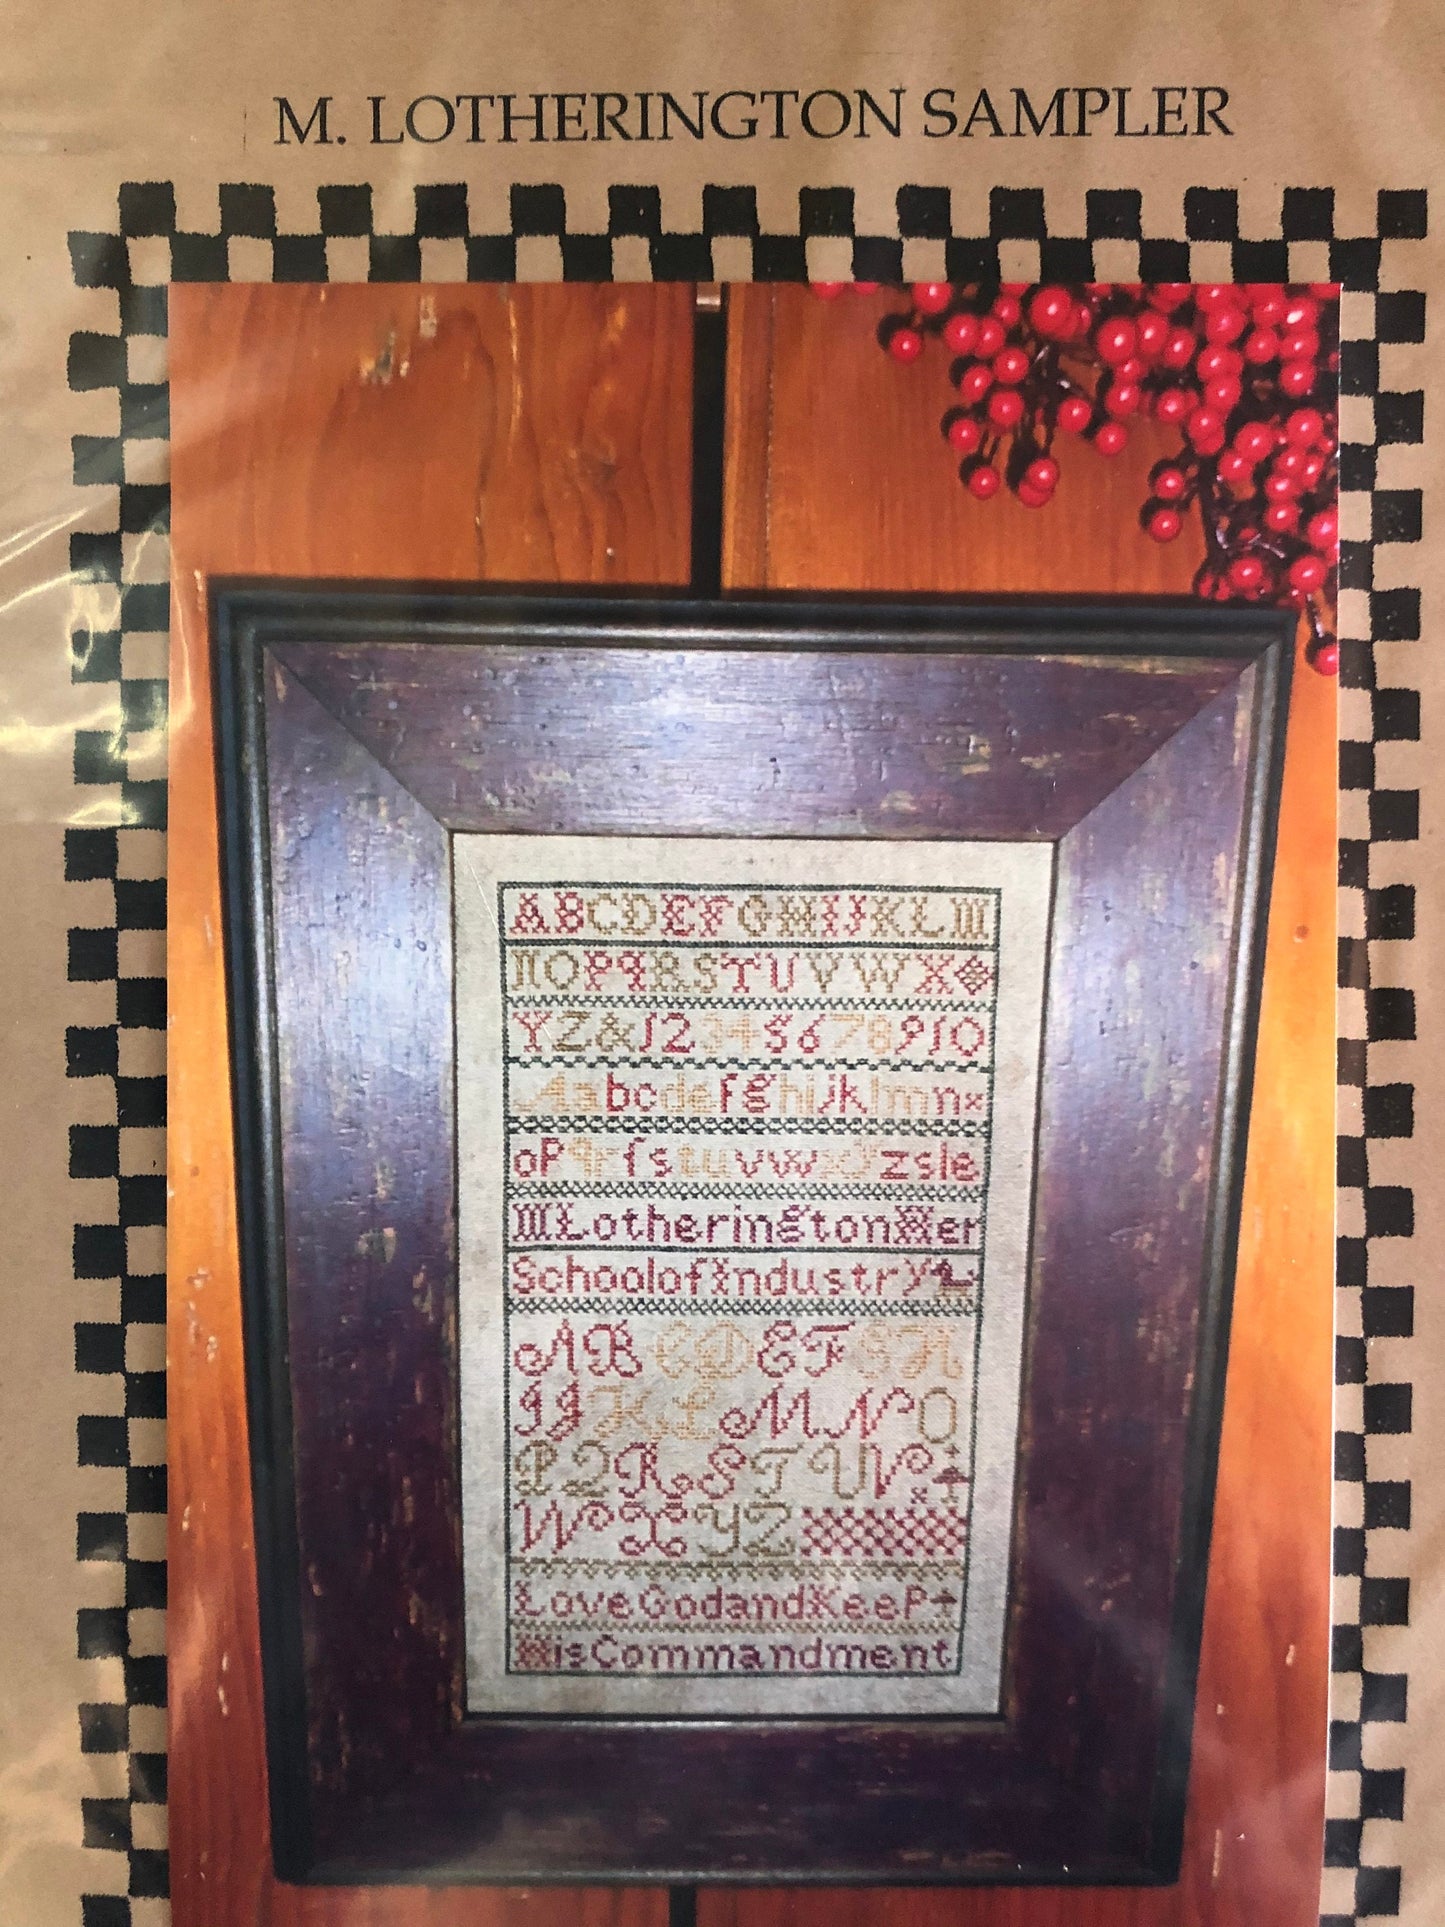 M. LOTHERINGTON SAMPLER
ABCDEFGHIJKLM
NOPqRSTUVWX
YZ&12345678910
Aabcdefghijklmn
oPqrſstuvwxyzsle
MLotheringtonHer
SchoolofIndustry
ABCDEFGH
IJKLMNO
PQRSTUV
WXYZ
LoveGodandKeeP
HisCommandment